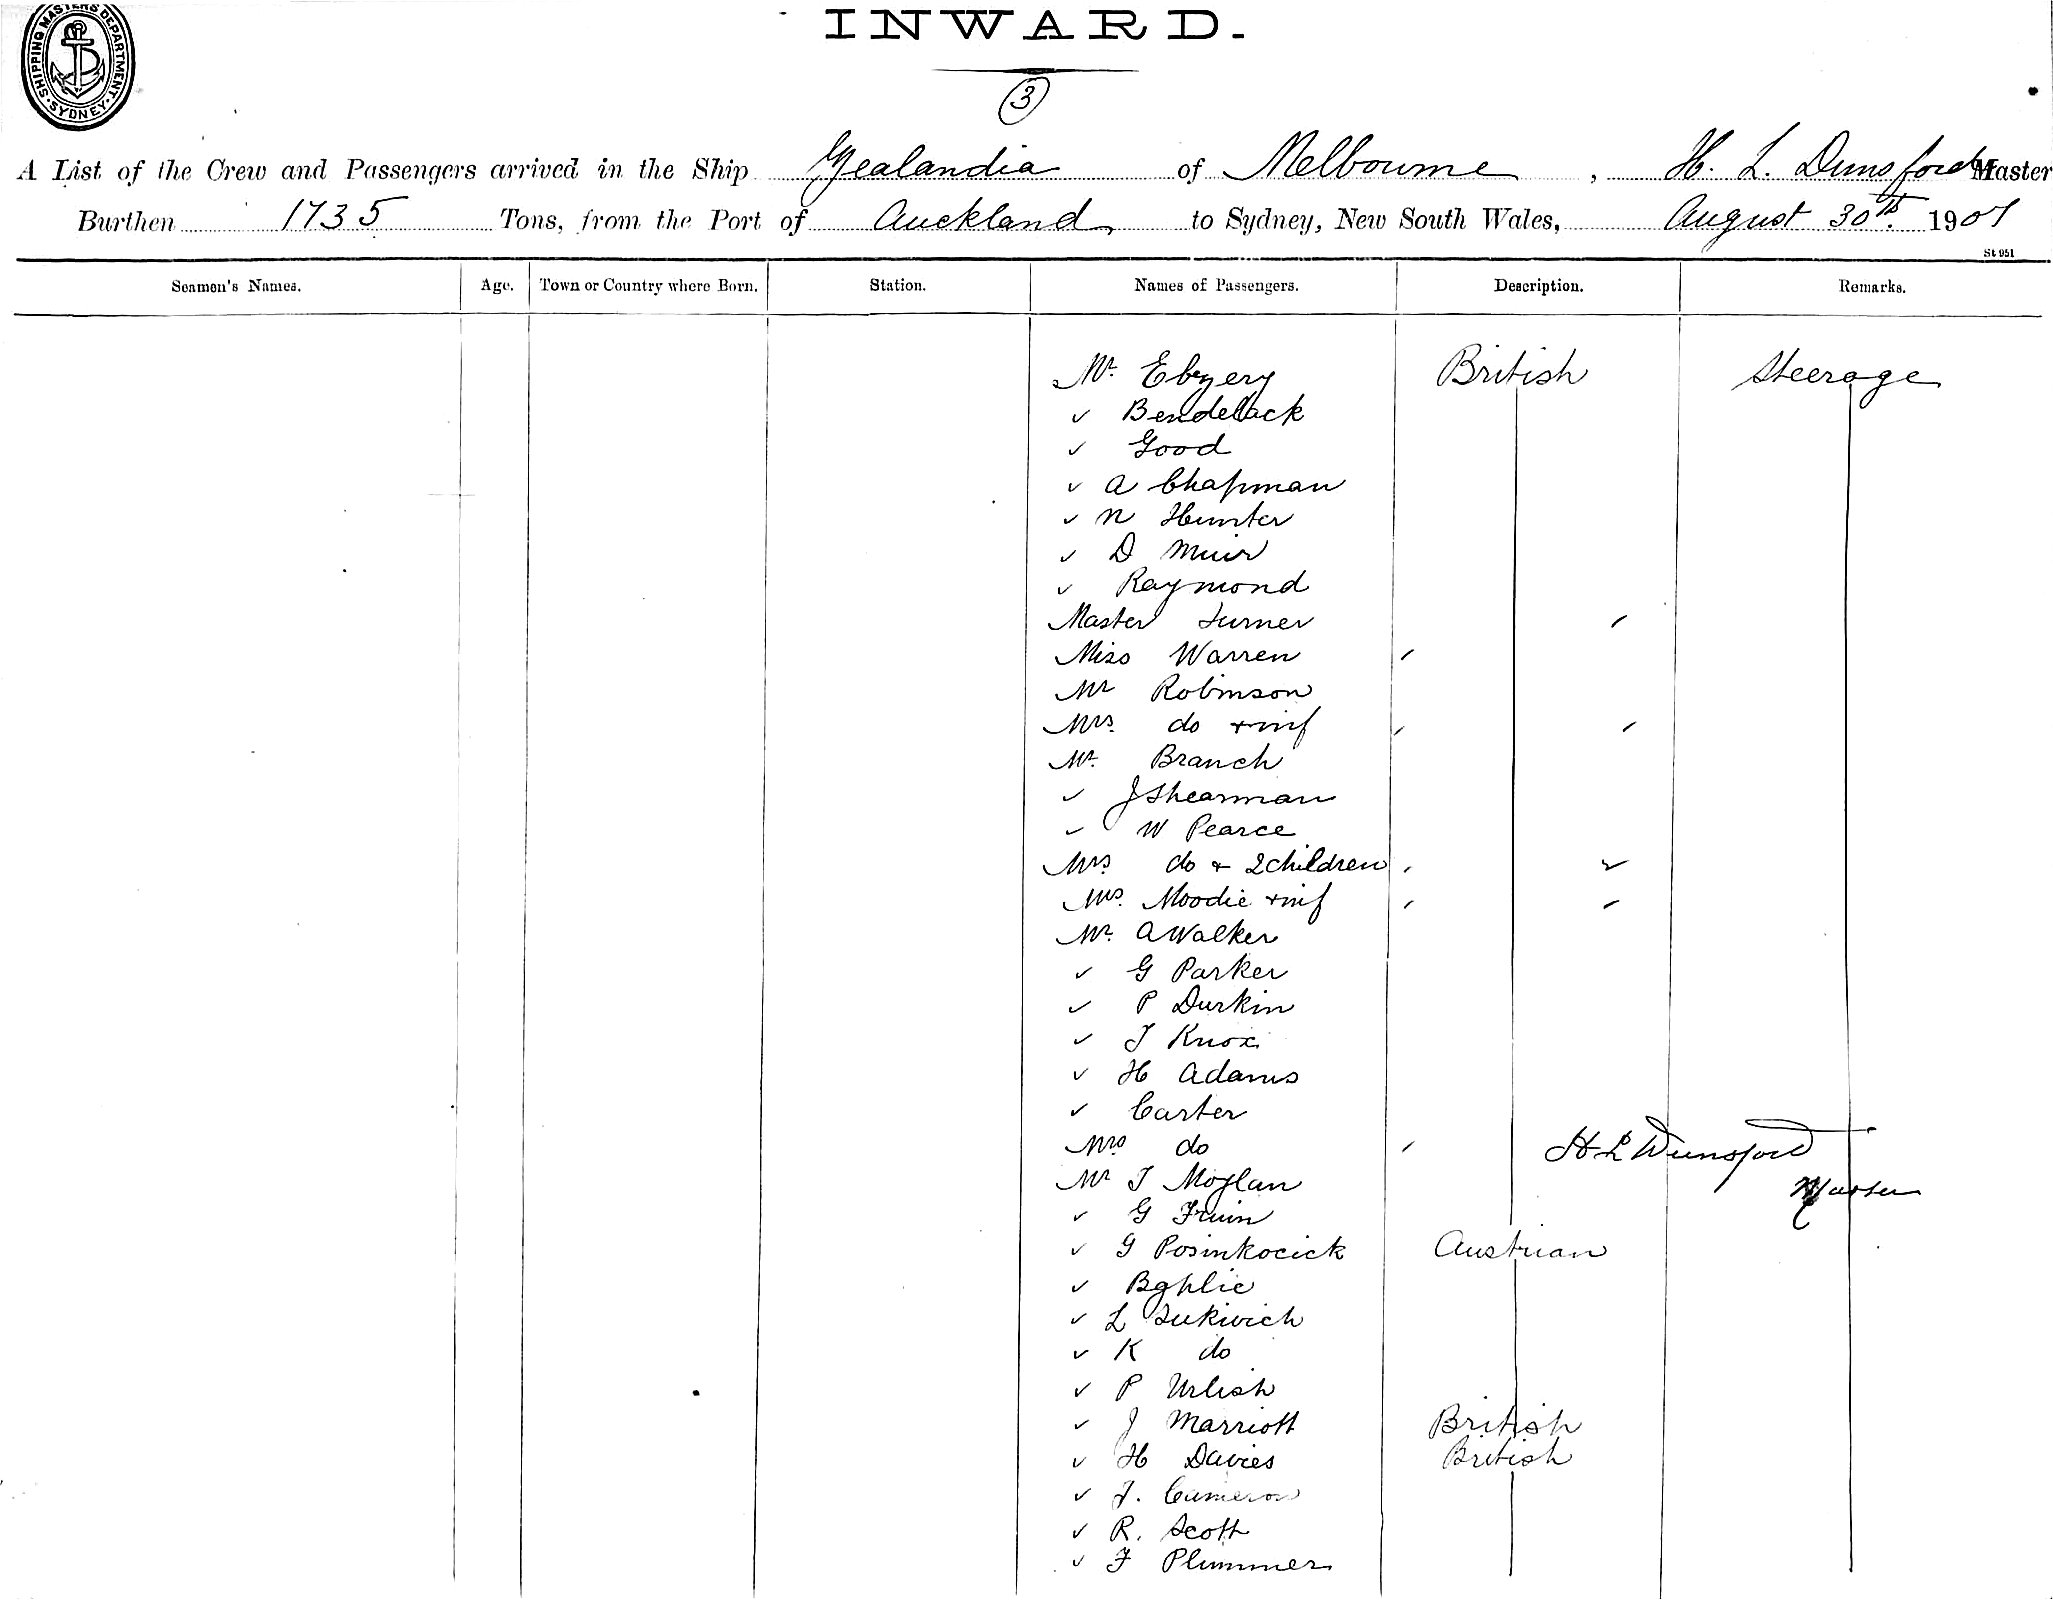 SHIPPING MASTERS DEPARTMENT. SYDNEY.
INWARD.
3
A List of the Crew and Passengers arrived in the Ship Zealandia of Melbourne, H. L. Dunsford Master
Burthen 1735 Tons, from the Port of Auckland to Sydney, New South Wales, August 30th. 1901
St 951
Seamen's Names. Age. Town or Country where Born. Station. Names of Passengers. Description. Remarks.
Mr. Ebzery British Steerage
✓ Bendelack
✓ Good
✓ A Chapman
✓ N Hunter
✓ D Muir
✓ Raymond
Master Turner
Miss Warren
Mr Robinson
Mrs. do + inf
Mr. Branch
✓ J Shearman
✓ W Pearce
Mrs do + 2 children
Mrs. Moodie + inf
Mr. A Walker
✓ G Parker
✓ P Durkin
✓ J Knox
✓ H Adams
✓ Carter
Mrs do H L Dunsford
Mr T Moylan Master
✓ G
✓ G Posinkocick Austrian
✓
✓ L
✓ K do
✓ P Urlish
✓ J Marriott British
✓ H Davies British
✓ J. Cameron
✓ R. Scott
✓ F Plummer